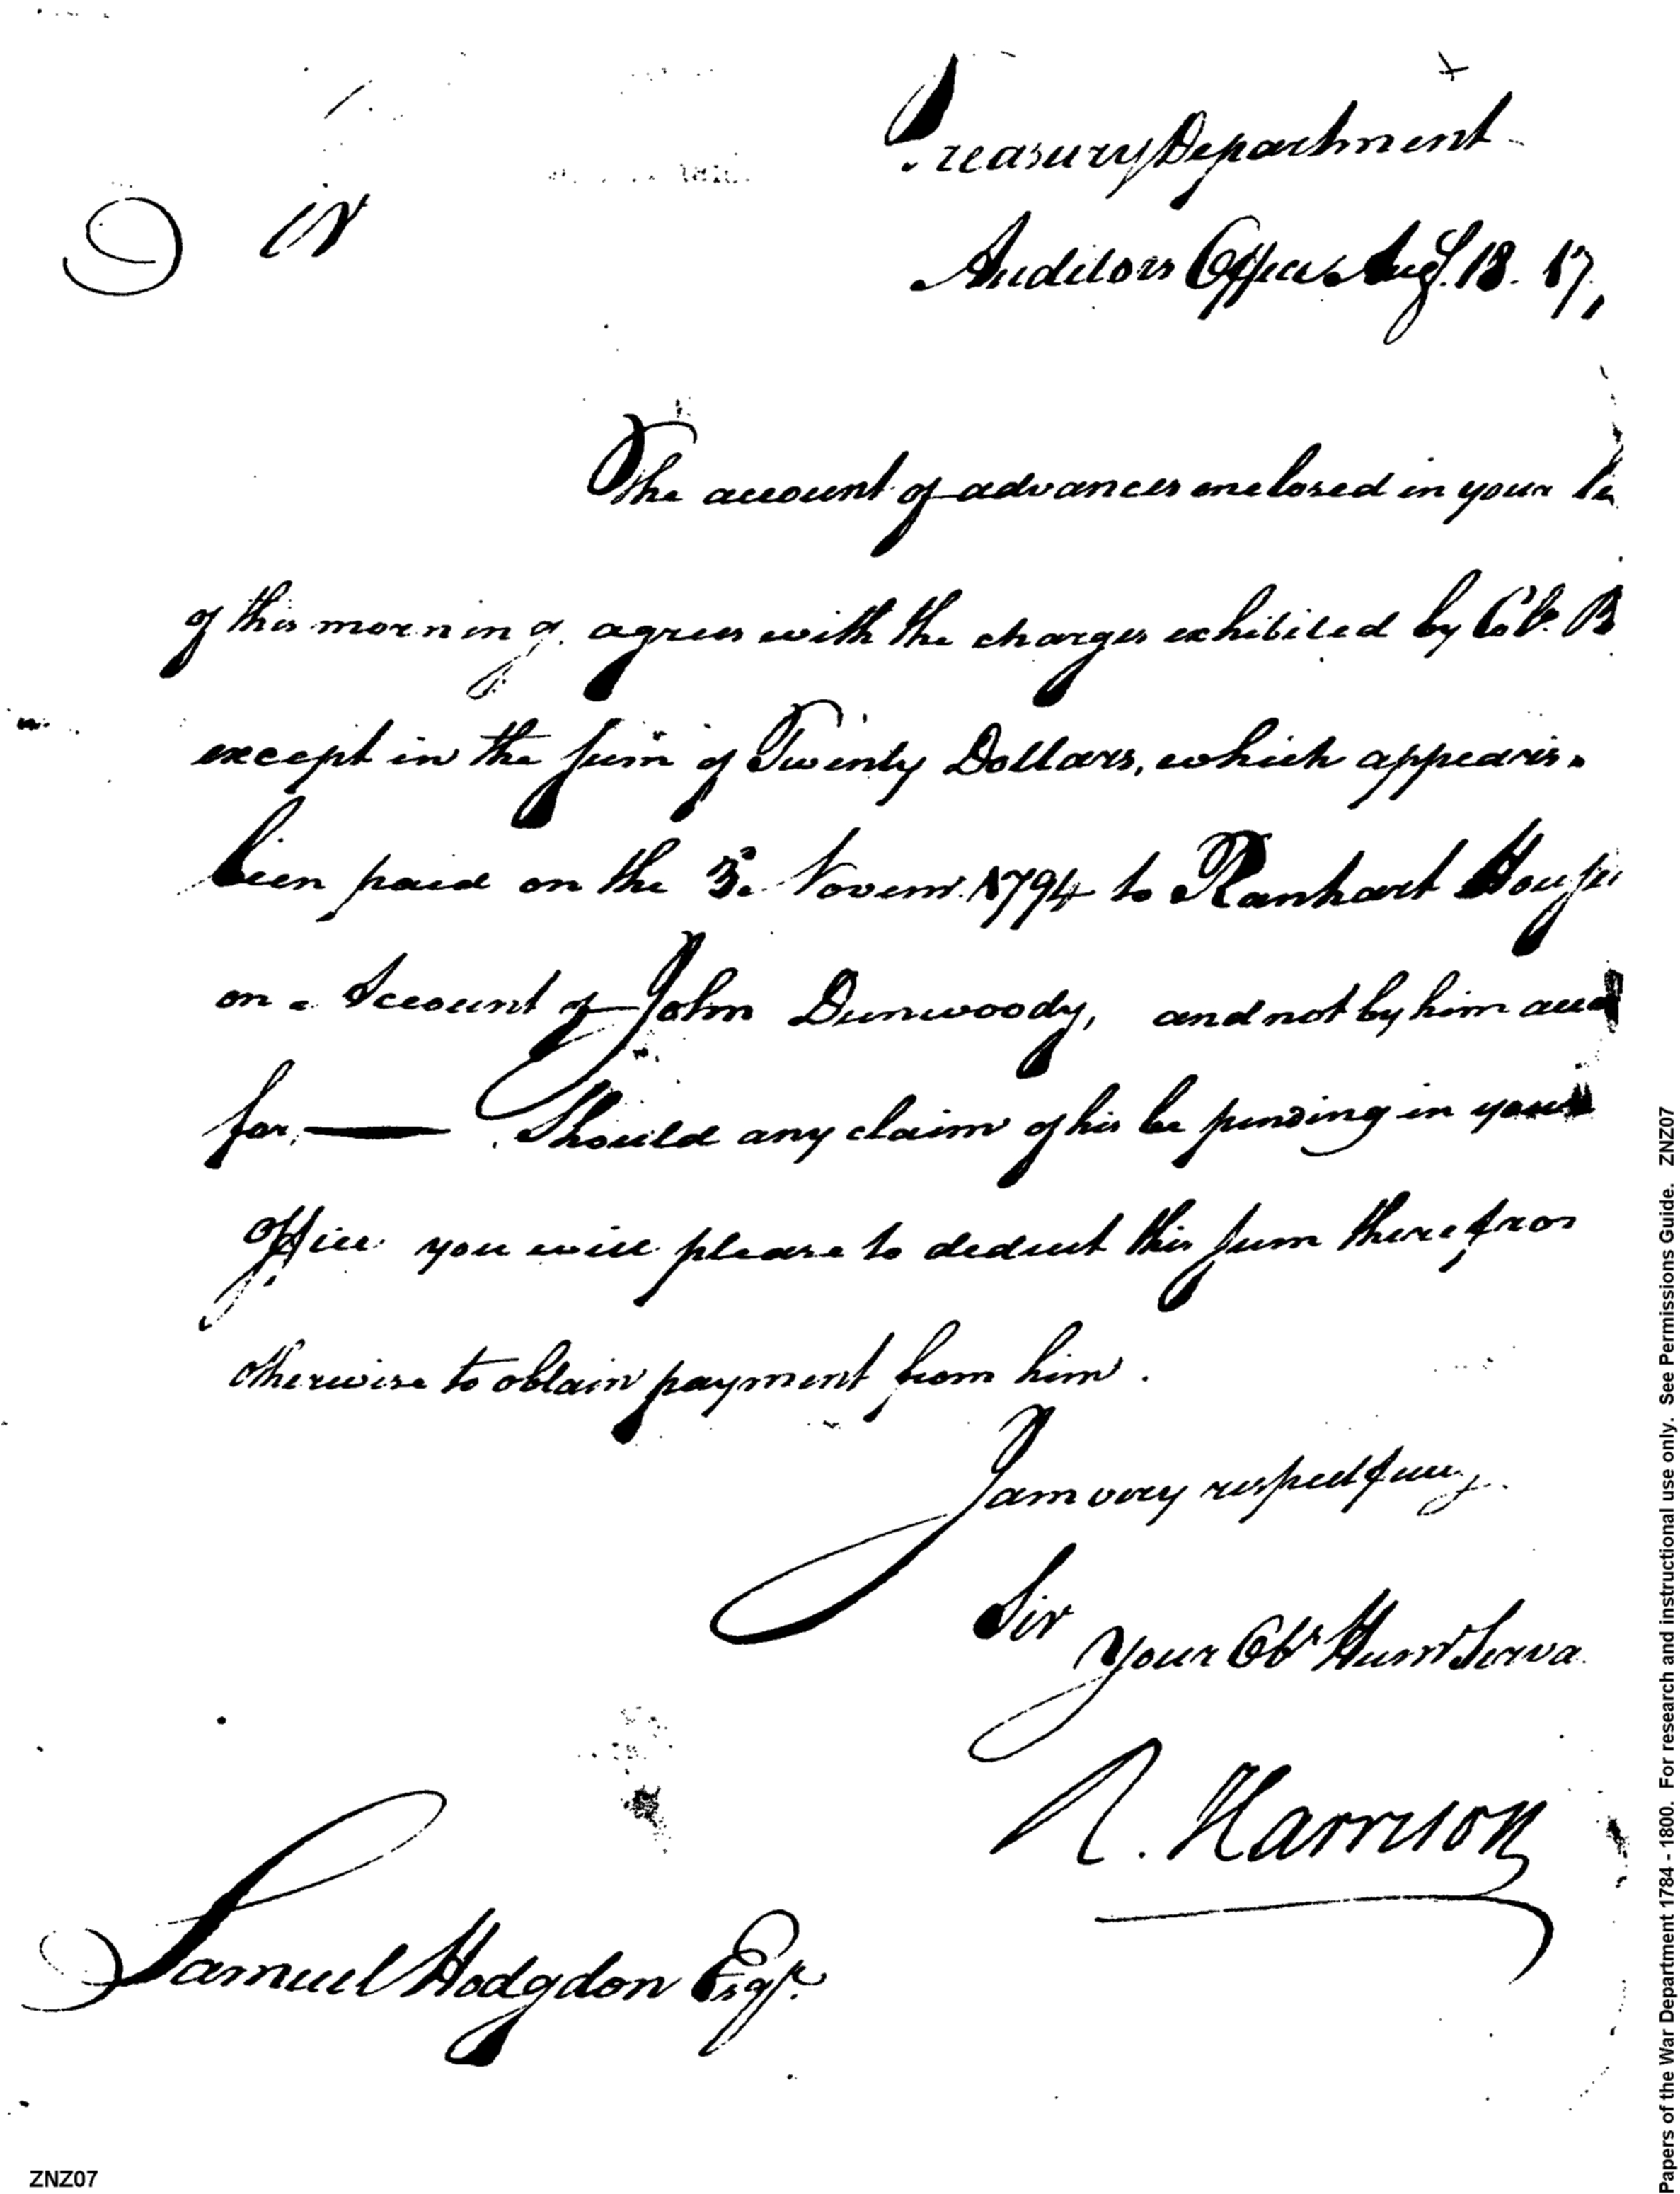 Treasury Department
Auditors Office Aug.t 18. 17
The account of advances enclosed in your le
of this morning, agrees with the charges exhibited by Col. B
except in the sum of Twenty Dollars, which appears
been paid on the 3. Novem.r 1794 to Ranhart
on Account of John Dunwoody, and not by him
for, — Should any claim of his be pending in your
Office you will please to deduct this sum therefrom
otherwise to obtain payment from him.
I am very respectfully
Sir
Your Ob.t Hum.e Serva
R. Harrison
Samuel Hodgdon Esq.r
ZNZ07
Papers of the War Department 1784 - 1800. For research and instructional use only. See Permissions Guide. ZNZ07